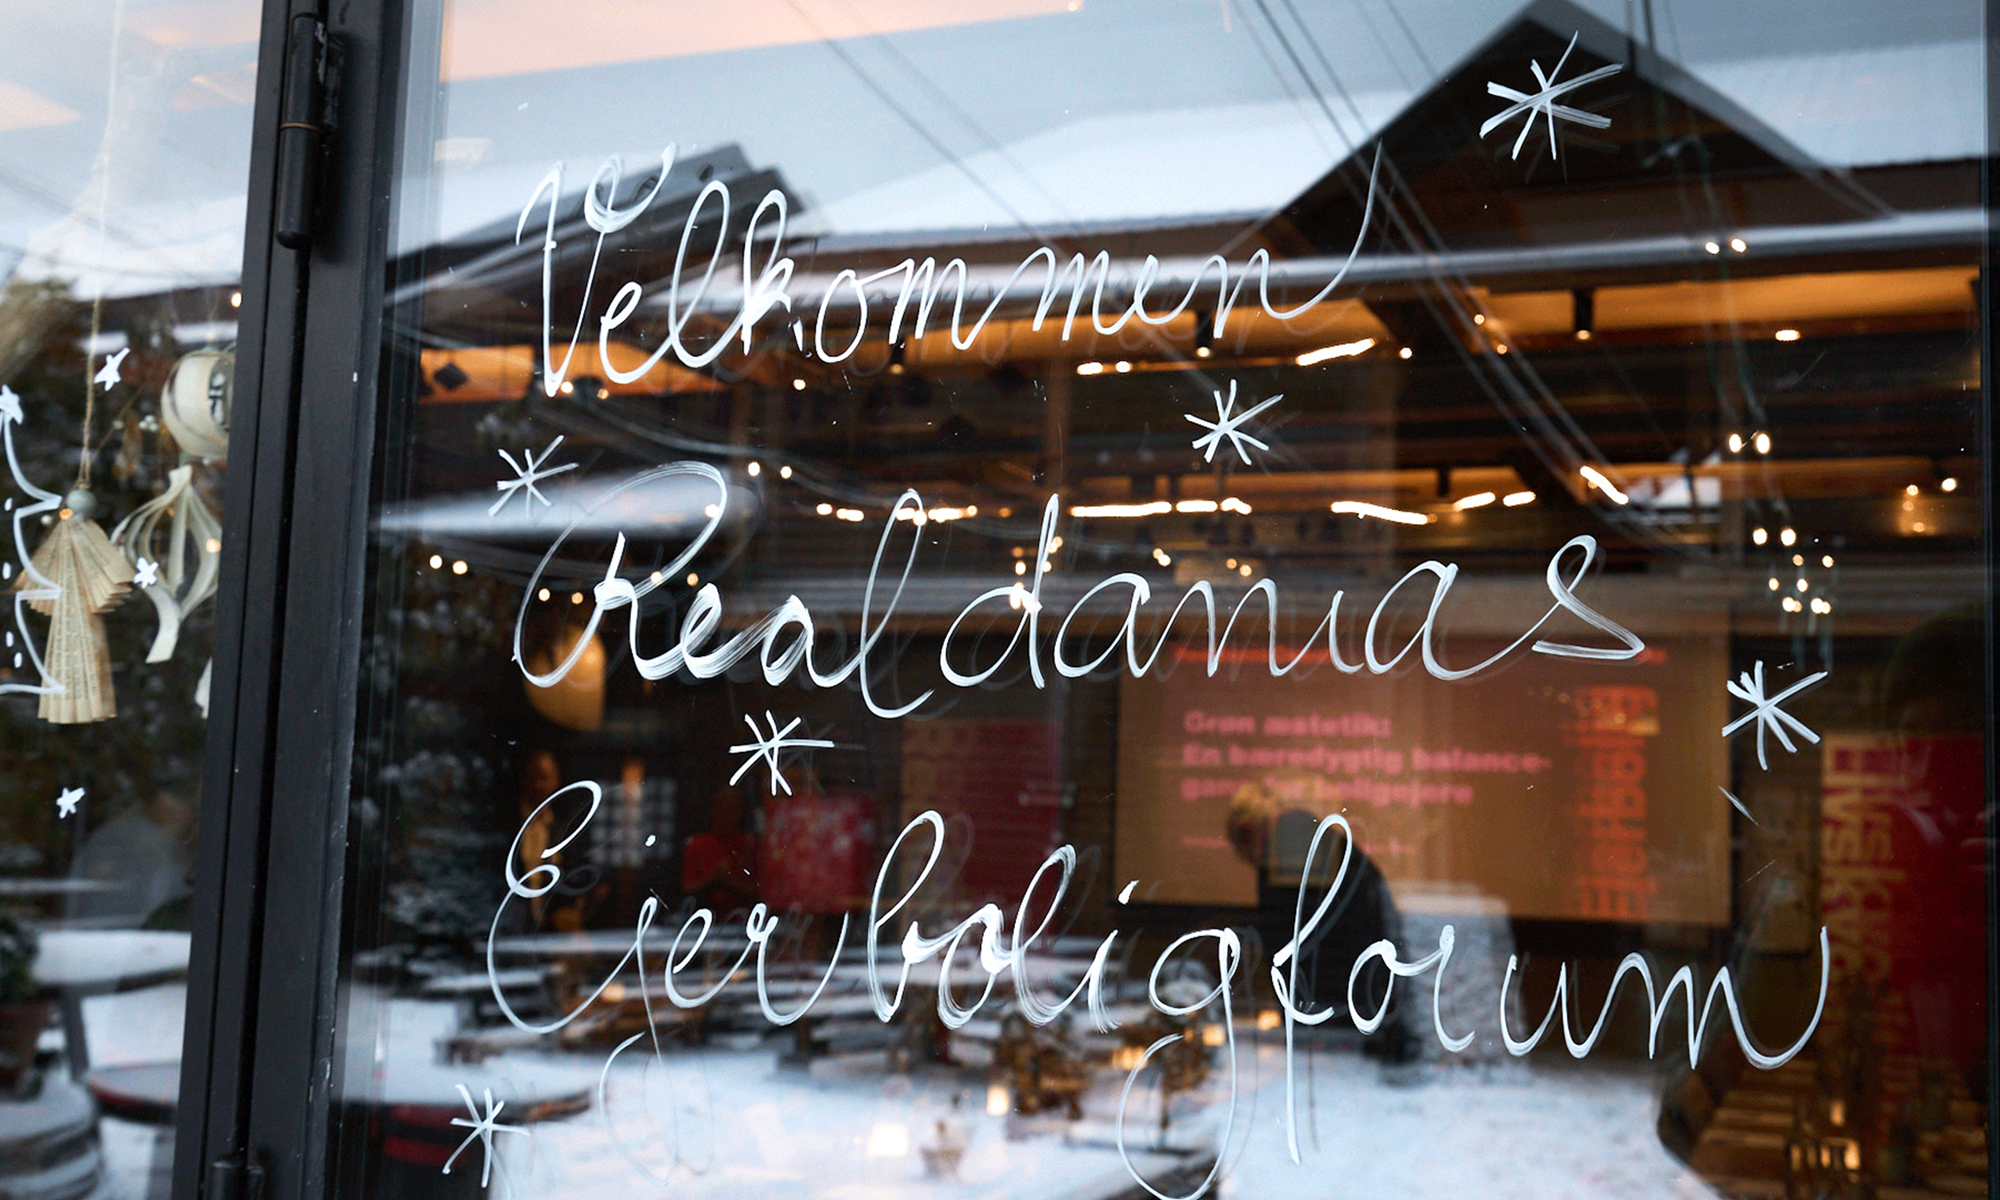 Velkommen
Realdanias
Ejerboligforum
Grøn matetik:
En bæredygtig balance-
boligejere